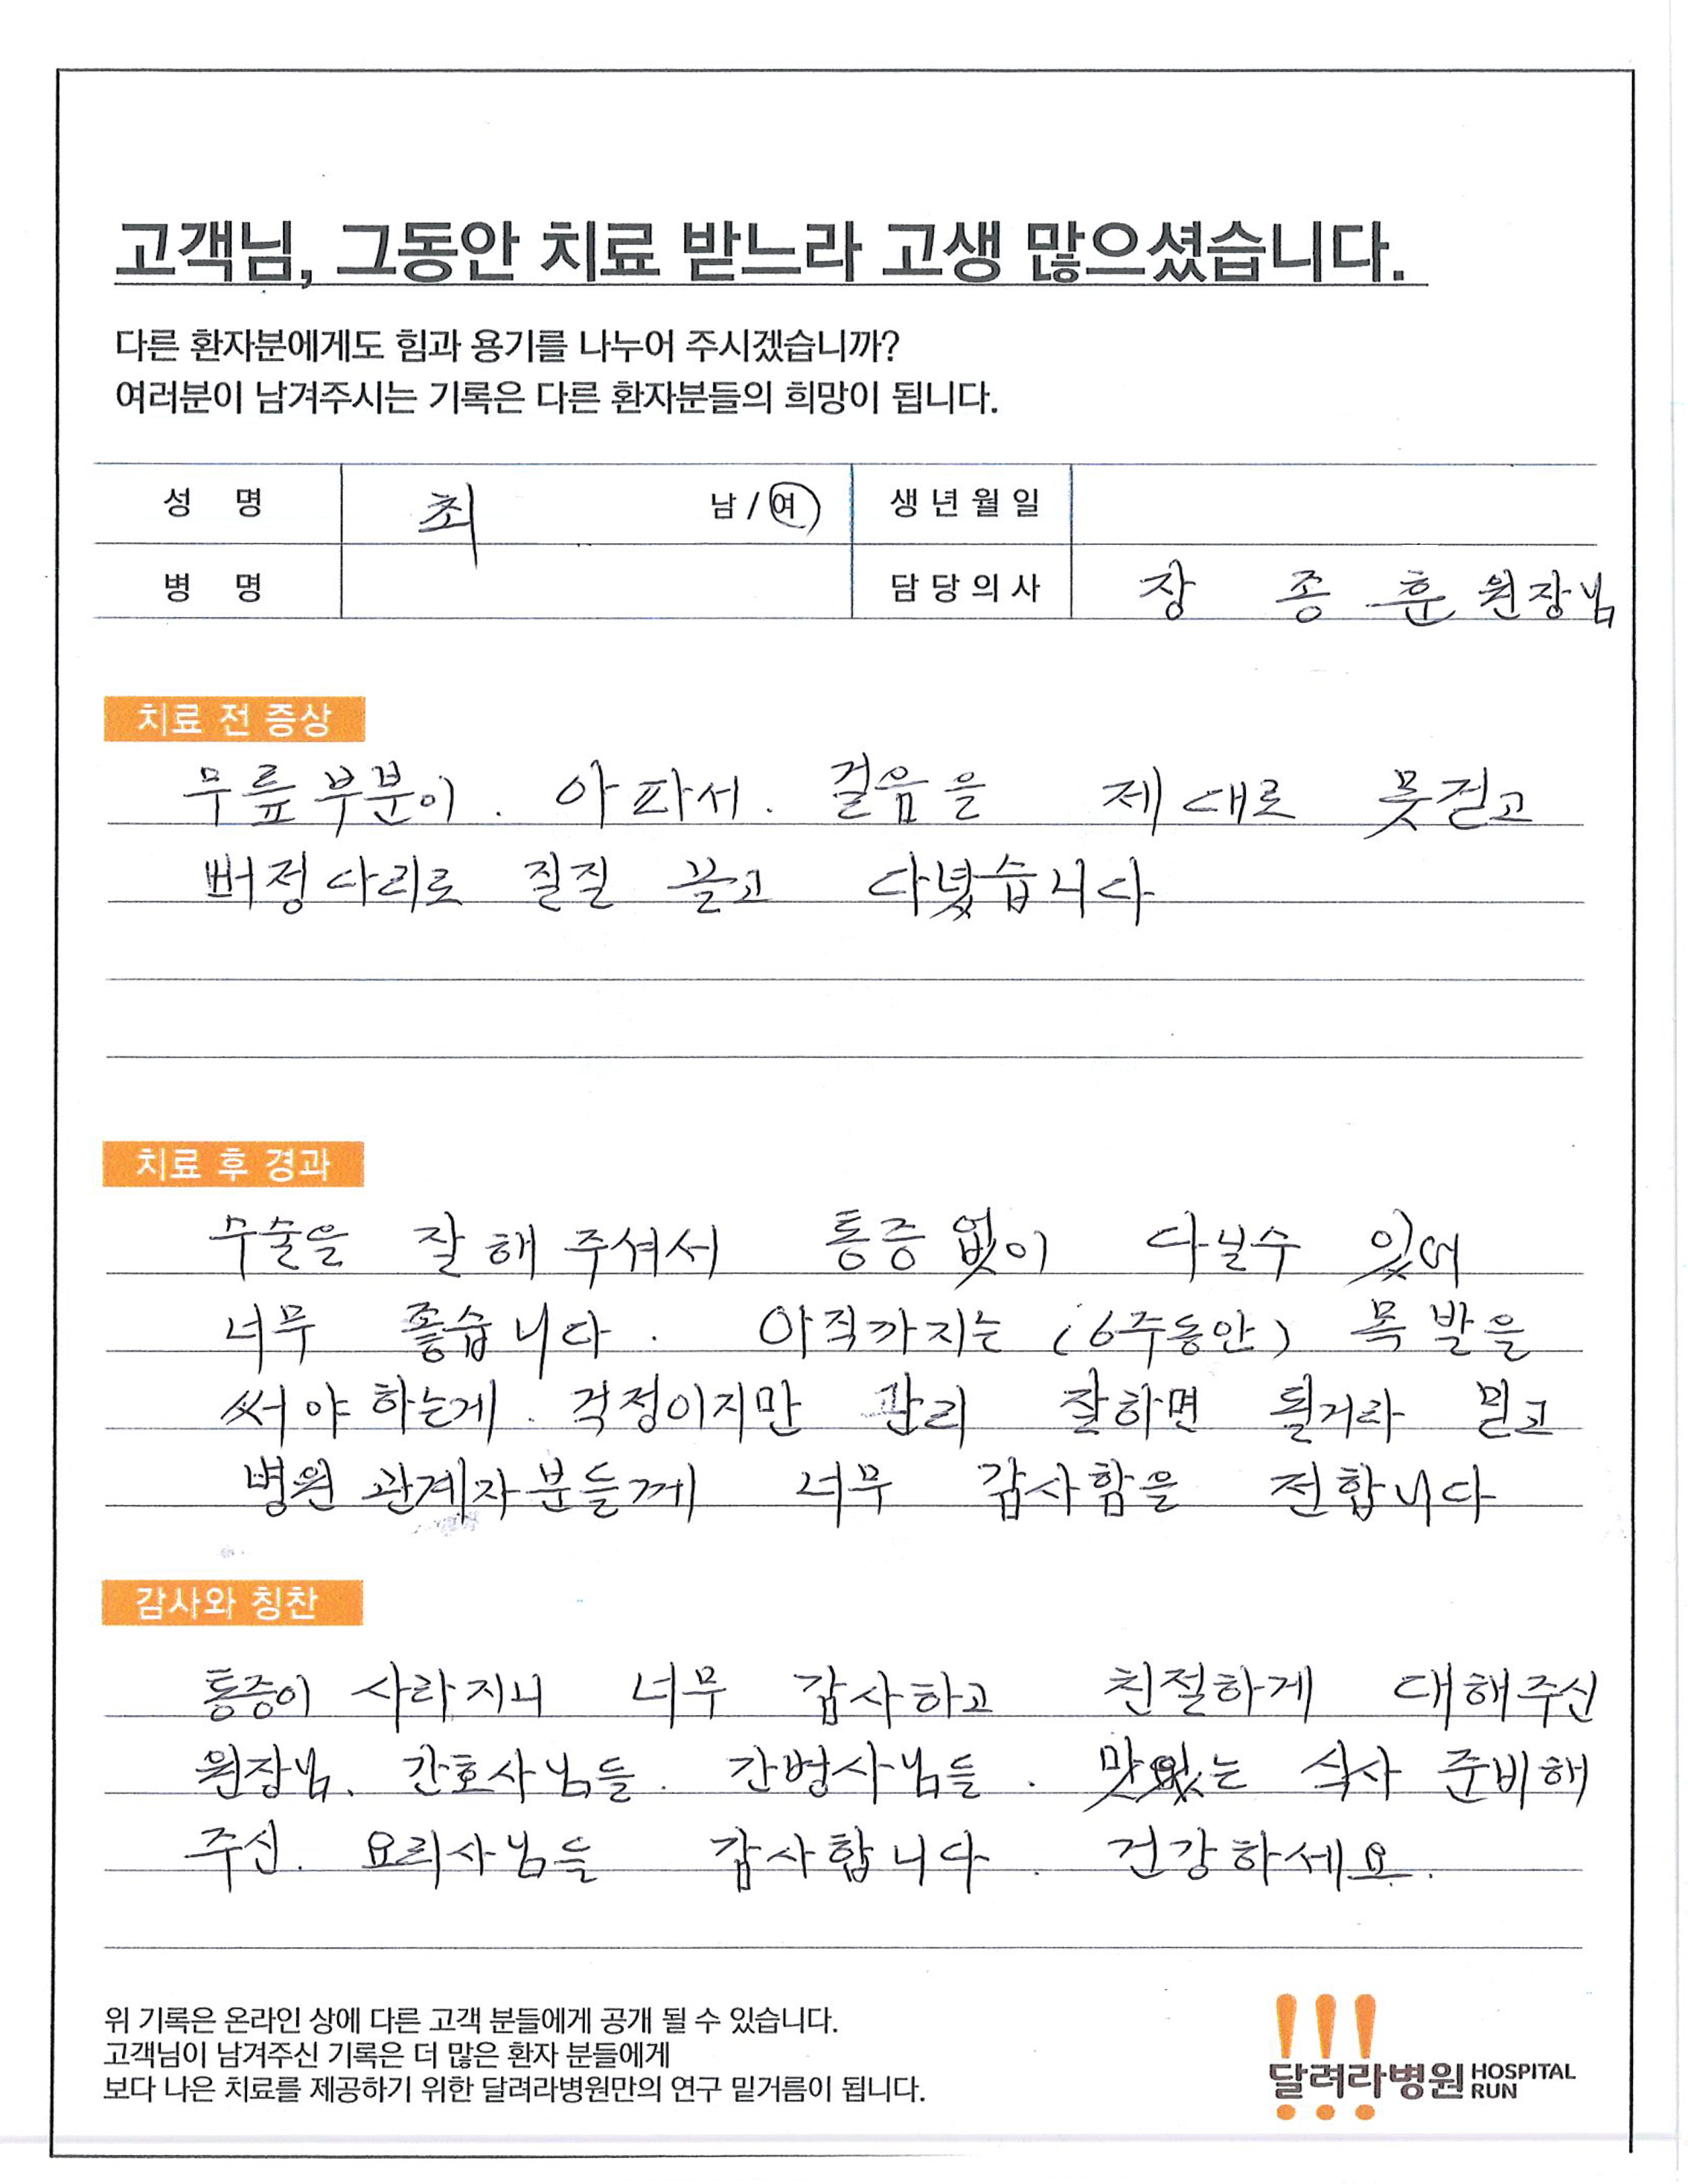 고객님, 그동안 치료 받느라 고생 많으셨습니다.
다른 환자분에게도 힘과 용기를 나누어 주시겠습니까?
여러분이 남겨주시는 기록은 다른 환자분들의 희망이 됩니다.
성 명 최 남 / 여 생년월일
병 명 담당의사 장 종 훈 원장님
치료 전 증상
무릎부분이. 아파서. 걸음을 제대로 못걷고
뻐정다리로 질질 끌고 다녔습니다
치료 후 경과
수술을 잘해주셔서 통증없이 다닐수 있어
너무 좋습니다. 아직까지는 (6주동안) 목발을
써야하는게. 걱정이지만 관리 잘하면 될거라 믿고
병원 관계자분들께 너무 감사함을 전합니다
감사와 칭찬
통증이 사라지니 너무 감사하고 친절하게 대해주신
원장님. 간호사님들. 간병사님들. 맛있는 식사 준비해
주신. 요리사님들 감사합니다. 건강하세요.
위 기록은 온라인 상에 다른 고객 분들에게 공개 될 수 있습니다.
고객님이 남겨주신 기록은 더 많은 환자 분들에게
보다 나은 치료를 제공하기 위한 달려라병원만의 연구 밑거름이 됩니다.
달려라병원 HOSPITAL RUN